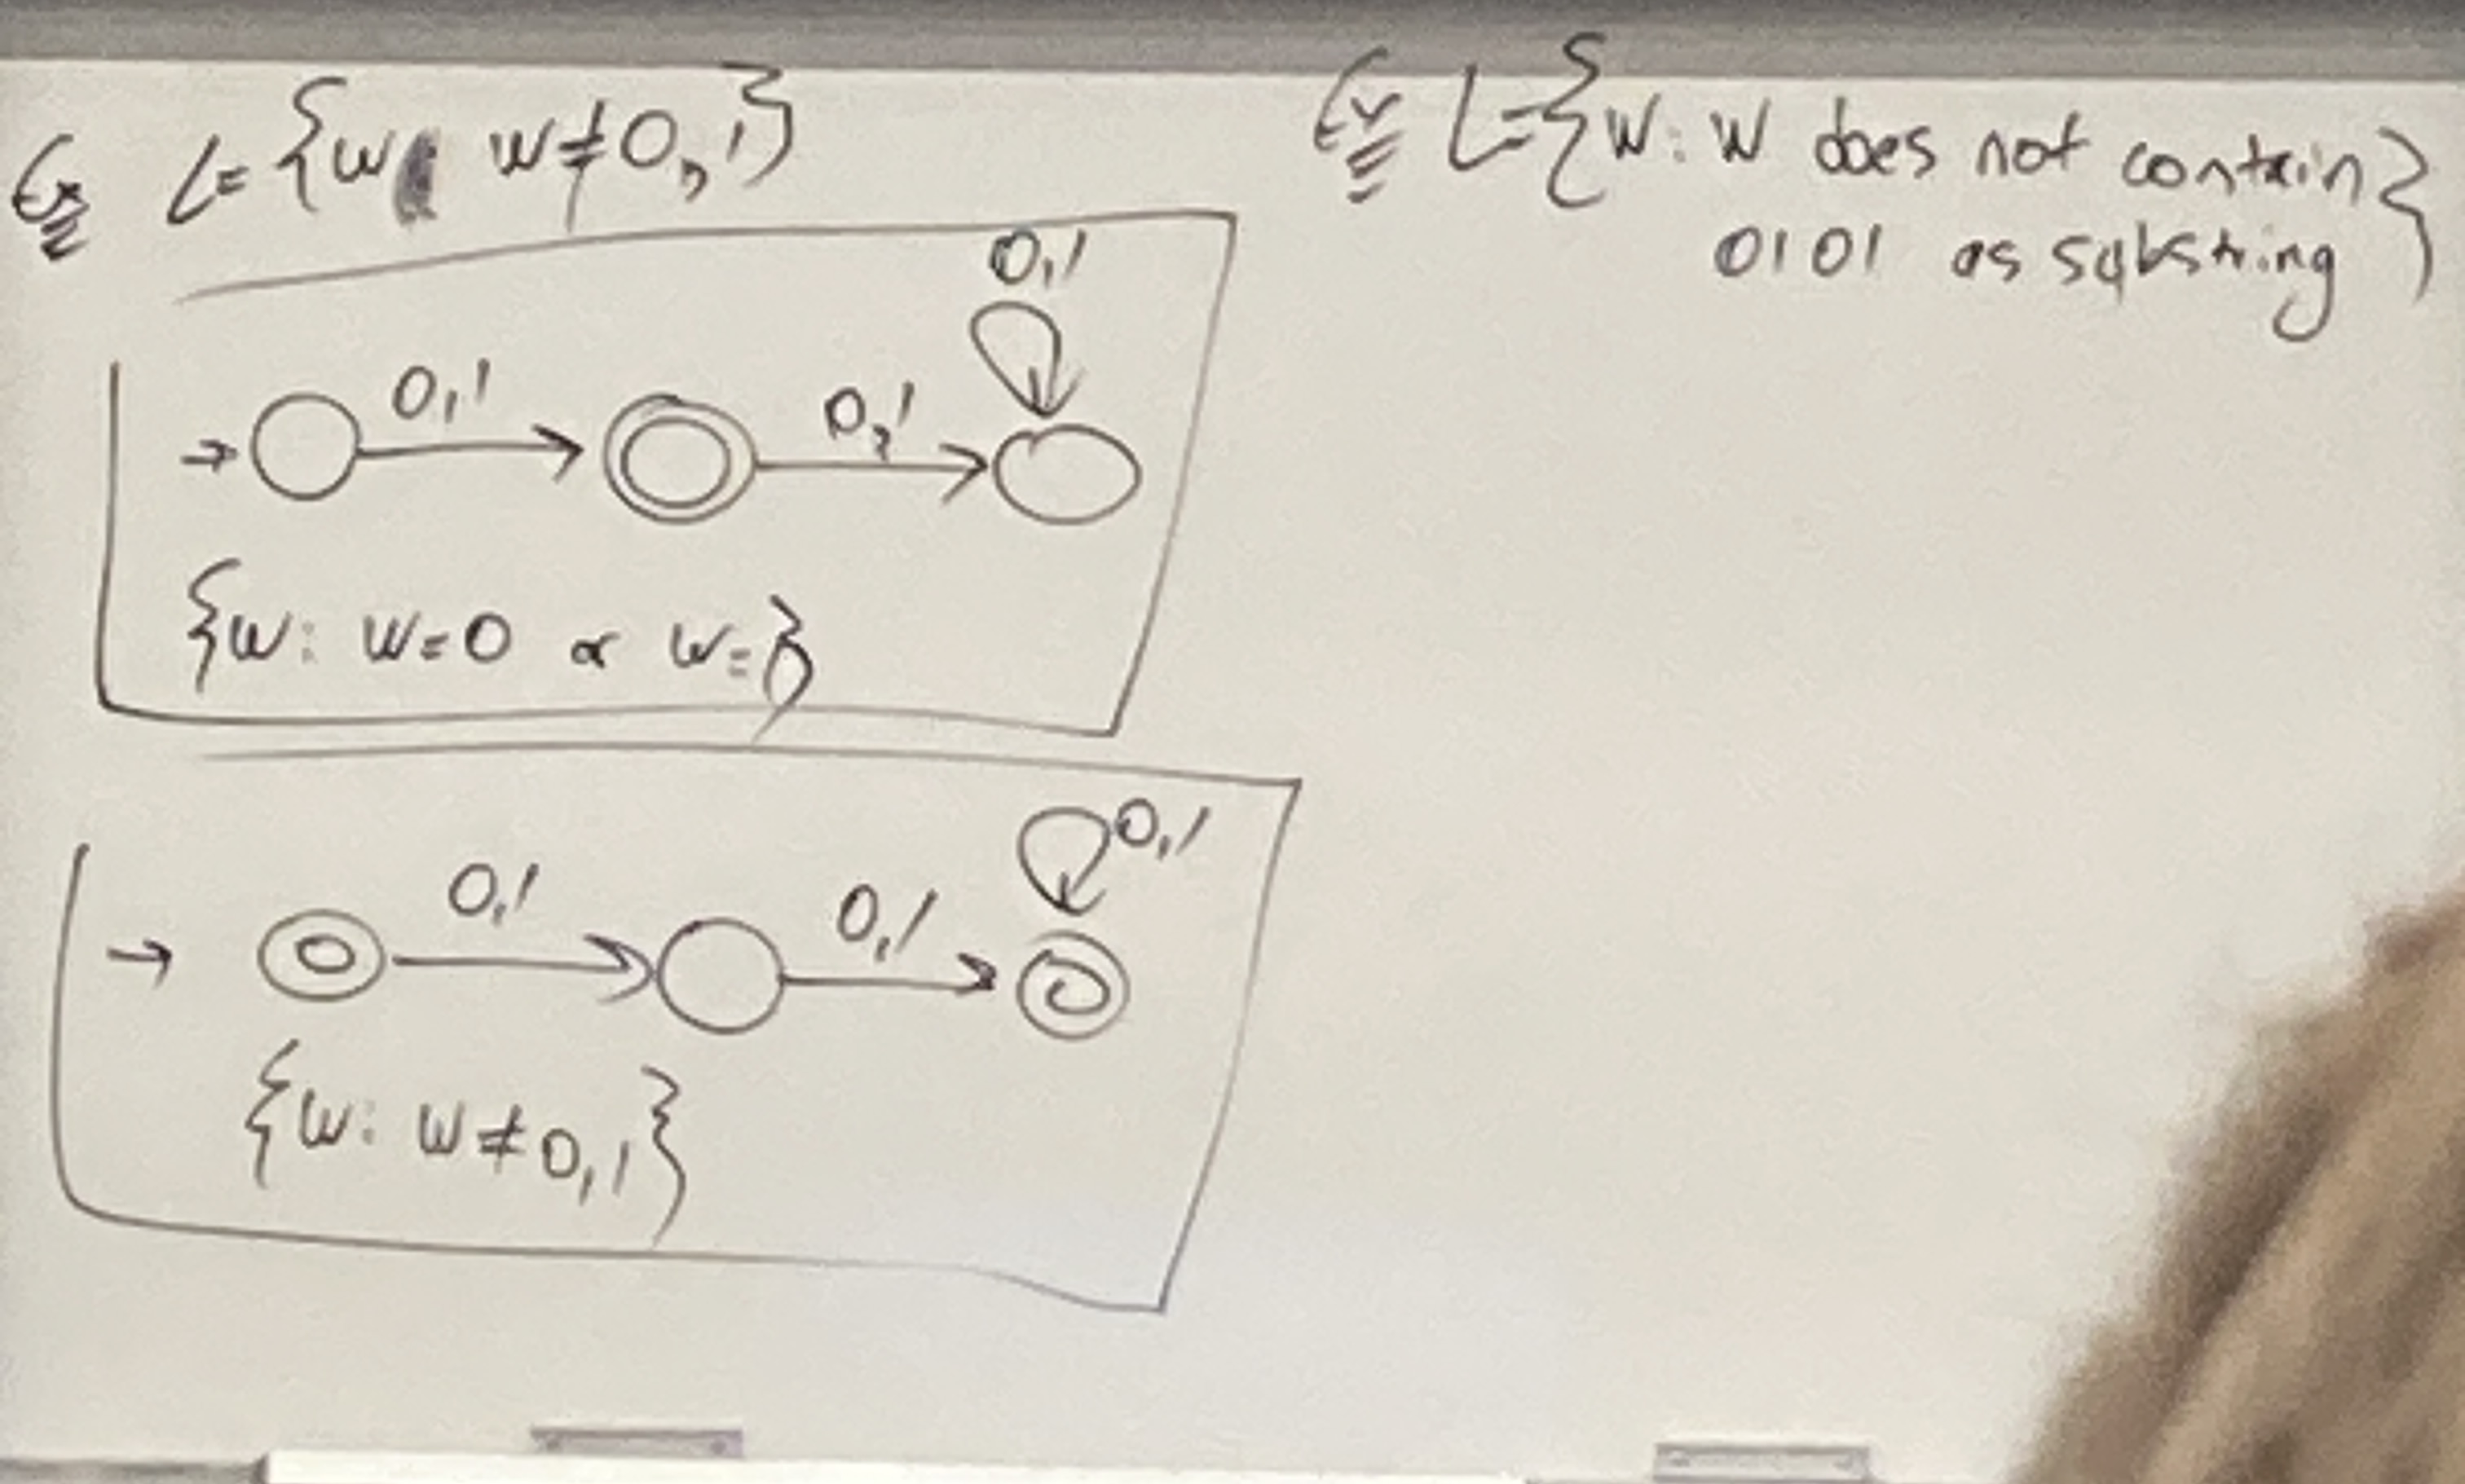 Ex L = {w w≠0, 1}
0,1
0,1
0,1
{w: w=0 or w=1}
0,1
0,1
0,1
{w: w≠0,1}
Ex L={w: w does not contain
0101 as substring}